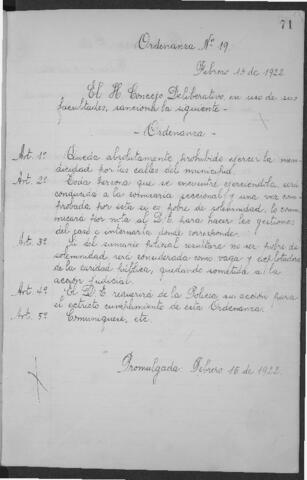 71
Ordenanza Nº 19.
Febrero 15 de 1922
El H Concejo Deliberativo, en uso de sus
facultades, sanciona la siguiente -
- Ordenanza -
Art. 1º Queda absolutamente prohibido ejercer la men-
dicidad por las calles del municipio.
Art. 2º Toda persona que se encuentre ejerciéndola, será
conducida a la comisaría seccional y una vez com-
probada por esta su es pobre de solemnidad, lo comu-
nicará por nota al D.E. para hacer las gestiones
del caso e internarla donde corresponde.
Art. 3º Si del sumario policial resultare no ser pobre de
solemnidad será considerada como vaga y explotadora
de la caridad pública, quedando sometida a la
acción judicial.
Art. 4º El D.E requerirá de la Policía su acción para
el estricto cumplimiento de esta Ordenanza.
Art. 5º Comuníquese, etc.
Promulgada: Febrero 16 de 1922.